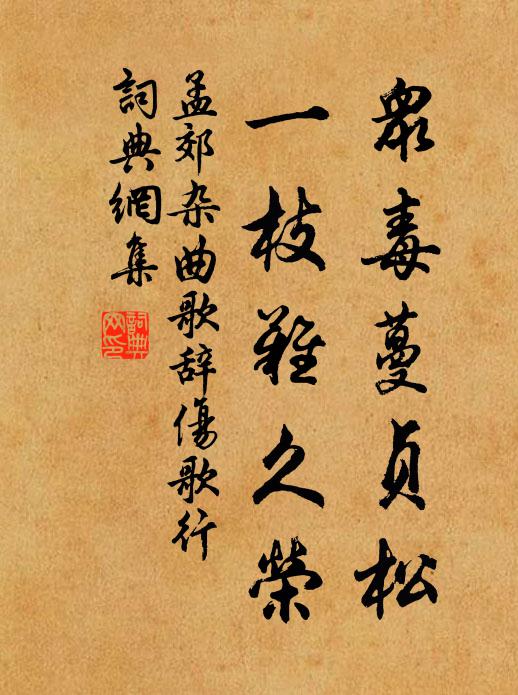 眾毒蔓貞松
一枝難久榮
孟郊杂曲歌辞傷歌行
詞典網集
詞典网印